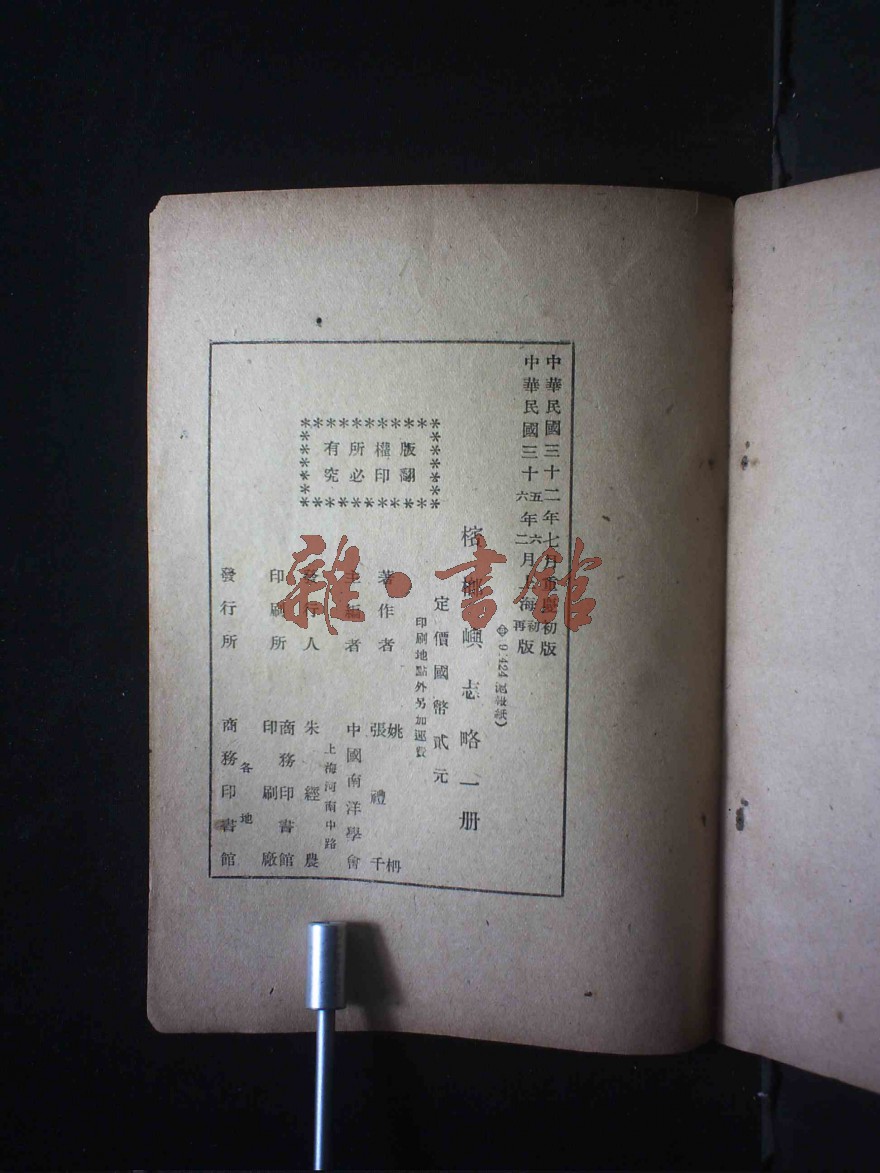 中華民國三十二年七月重慶初版
中華民國三十五年六月上海初版
六年二月 再版
檳榔嶼志略一册
定價國幣貳元
印刷地點外另加運費
版權所有
翻印必究
著作者 姚枬 張禮千
主編者 中國南洋學會
發行人 朱經農
上海河南中路
印刷所 商務印書館印刷廠
發行所 各地 商務印書館
雜·書館